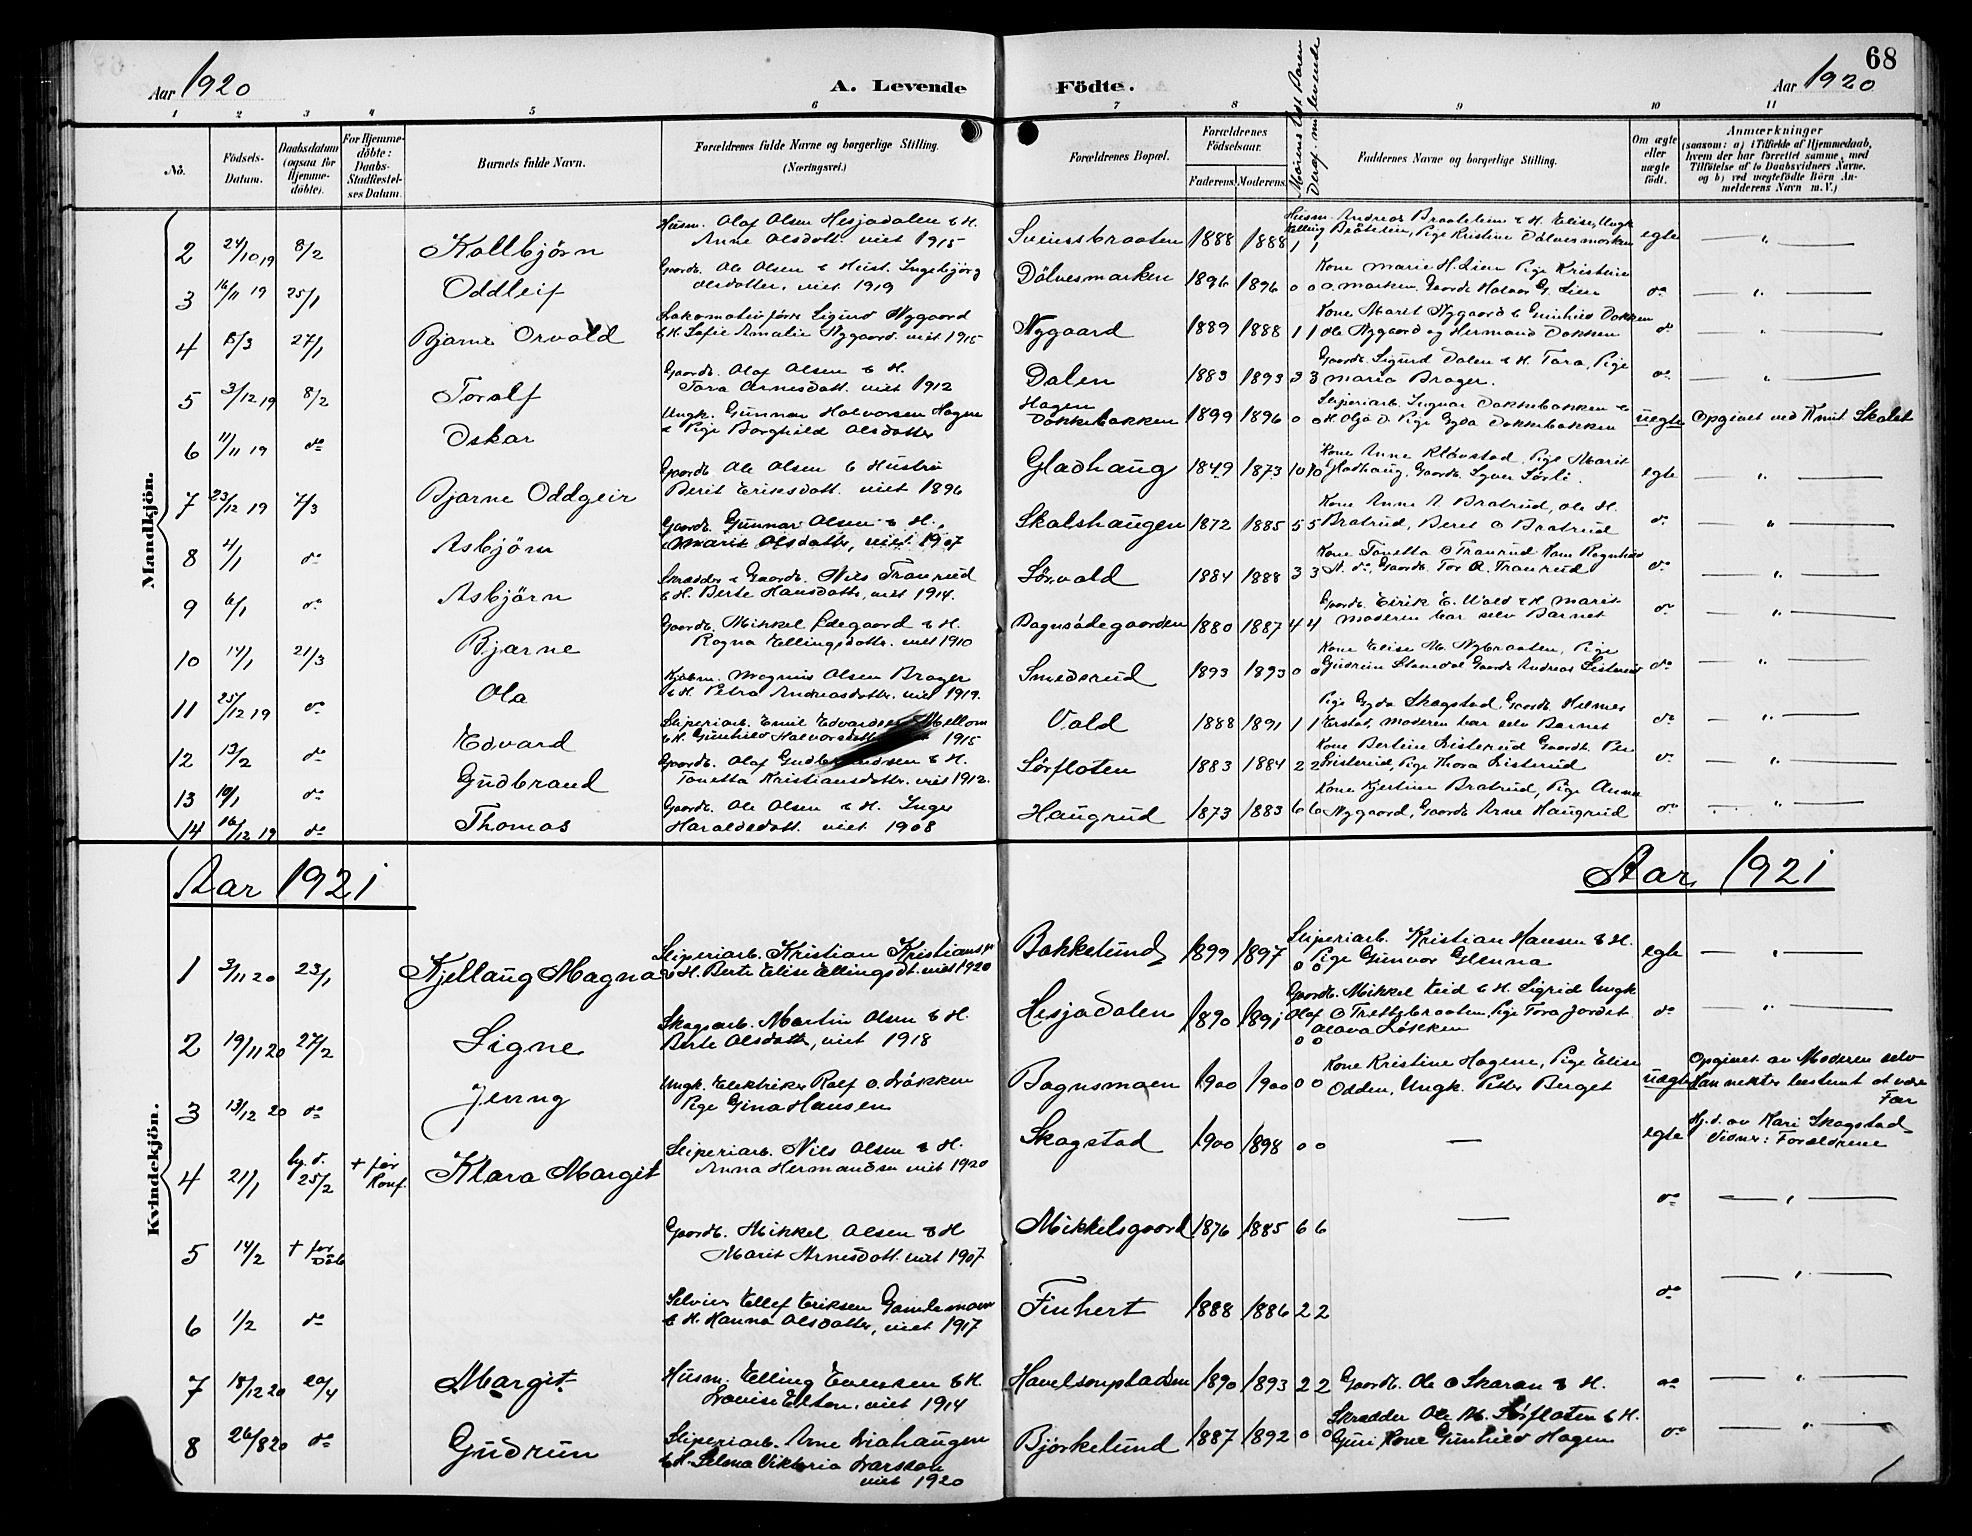 68
Aar 1920
A. Levende
Födte.
Aar 1920
1 2 3 4 5 6 7 8 9 10 11
No.
Födsels-Datum.
Daabsdatum (ogsaa for Hjemme-döbte).
For Hjemme-döbte: Daabs-Stadfæstel-ses Datum.
Barnets fulde Navn.
Forældrenes fulde Navne og borgerlige Stilling. (Næringsvei.)
Forældrenes Bopæl.
Forældrenes Födselsaar.
Faderens. Moderens.
Faddernes Navne og borgerlige Stilling.
Om ægte eller uægte födt.
Anmærkninger
(saasom: a) i Tilfælde af Hjemmedaab, hvem der har forrettet samme, med Tilföielse af to Daabsvidners Navne, og b) ved uægtefödte Börn An-melderens Navn m. V.)
Mandkjön.
2 24/10 19 8/2 Kallbjörn Husm. Olaf Olsen Hesjadalen & H. Anne Olsdatt. viet 1915 Sveinsbraaten 1888 1888 1 1 Husm. Andreas Braateten & H. Elise, Ungk. Elling Bråteten, Pige Kristine Dölvesmarken egte "
3 16/11 19 25/1 Oddleif Gaardb. Ole Olsen & Hust. Ingebjörg Olsdatter, viet 1919 Dölvesmarken 1896 1896 0 0 Kone Marie H. Lien Pige Kristine O. Marken, Gaardb. Halvor G. Lien do "
4 5/3 27/1 Bjarne Orvald Lokomotivförer Sigurd Nygaard & H. Sofie Amalie Nygaard. viet 1915 Nygaard 1889 1888 1 1 Kone Marit Nygaard & Gunhild Dokken Ole Nygaard og Hermand Dokken do "
5 3/12 19 8/2 Toralf Gaardb. Olaf Olsen & H. Tara Arnesdatt. viet 1912 Dalen 1883 1893 3 3 Gaardb. Sigurd Dalen & H. Tara, Pige Maria Brager. do "
6 11/11 19 do Oskar Ungk. Gunnar Halvorsen Hagen & Pige Borghild Olsdatter Hagen Dokkebakken 1899 1896 0 0 Sliperiarb. Ingvar Dokkebakken & H. Olga D. Pige Gyda Dokkebakken uegte Opgivet ved Knut Skalet
7 23/12 19 7/3 Bjarne Oddgeir Gaardb. Ole Olsen & Hustru Berit Eriksdatt. viet 1896 Gladhaug 1849 1873 10 10 Kone Anne Klövstad, Pige Marit Gladhaug, Gaardb. Syver Sörli. egte "
8 4/1 do Asbjörn Gaardb. Gunnar Olsen & H. Marit Olsdatter, viet 1907 Skalshaugen 1872 1885 5 5 Kone Anne A. Bratrud, Ole H. Bratrud, Beret O Bratrud do "
9 6/1 do Asbjörn Skrædder & Gaardb. Nils Tranrud & H. Berte Hansdatter, viet 1914. Sörvald 1884 1888 3 3 Kone Tonetta O Tranrud Kone Ragnhild N. do, Gaardb. Tor A. Tranrud do "
10 14/1 21/3 Bjarne Gaardb. Mikkel Ödegaard & H. Ragna Ellingsdatt. viet 1910 Bagnsödegaarden 1880 1887 4 4 Gaardb. Eirik E. Wald & H. Marit Moderen bar selv Barnet do "
11 25/12 19 do Ola Kjöbm. Magnus Olsen Brager & H. Petra Andreasdatter. viet 1919. Smederud 1893 1893 0 0 Kone Elise M. Nybraaten, Pige Gudrun Stavedal Gaardb. Andreas Listerud do "
12 13/2 do Edvard Sliperiarb. Emil Edvardsen Mellom & H. Gunhild Halvorsdatt. 1915 Vald 1888 1891 1 1 Pige Gyda Skagstad, Gaardb. Helmer Erstad, Moderen bar selv Barnet do "
13 10/1 do Gudbrand Gaardb. Olaf Gudbrandsen & H. Tonetta Kristiansdatter. viet 1912. Sörfloten 1883 1884 2 2 Kone Bertine Listerud Gaardb. Per Listerud, Pige Thora Listerud do "
14 16/12 19 do Thomas Gaardb. Ole Olsen & H. Inger Haraldsdatt. viet 1908 Haugrud 1873 1883 6 6 Kone Kjerstine Bratrud, Pige Anna Nygaard, Gaardb. Arne Haugrud do "
Aar 1921
Aar 1921
Kvindekjön.
1 3/11 20 23/1 Kjellaug Magna Sliperiarb. Kristian Kristians & H. Berte Elise Ellingsdt. viet 1920 Bakkelund 1899 1897 0 0 Sliperiarb. Kristian Hansen & H. Pige Gunvor Glenna egte "
2 19/11 20 27/2 Signe Skogsarb. Martin Olsen & H. Berte Olsdatter, viet 1918 Hesjadalen 1890 1891 0 0 Gaardb. Mikkel Leid & H. Sigrid Ungk Olaf O Trettebraaten, Pige Tora Jordet Olava Lökken do "
3 13/12 20 do Jenny Ungk. Elektriker Ralf O. Lökken Pige Gina Hansen Bagnsmoen 1900 1900 0 0 Kone Kristine Hagene, Pige Elise Odden, Ungk. Petter Berget uegte Opgivet av Moderen selv Han nekter bestemt at være Far
4 21/1 hj. d. 25/2 + för Konf. Klara Margit Sliperiarb. Nils Olsen & H. Anna Hermandsen viet 1920 Skagstad 1900 1898 0 0 — egte Hj. d. av Kari Skagstad Vidner: Forældrene
5 14/2 + för Daab Gaardb. Mikkel Olsen & H Marit Arnesdatt. viet 1907 Mikkelsgaard 1876 1885 6 6 — do "
6 1/2 do Selveier Ellef Eriksen Gamlemoen & H. Hanna Olsdatter, viet 1917 Finhert 1888 1886 2 2 do "
7 18/12 20 20/4 Margit Husm. Elling Evensen & H. Lovise Elton. viet 1914 Havelsenpladsen 1890 1893 2 2 Gaardb. Ole O Skaran & H. do "
8 26/8 20 do Gudrun Sliperiarb. Arne Liahaugen & H. Selma Viktoria Larsson viet 1920 Björkelund 1887 1892 0 0 Skrædder Ole M. Sörfloten & H. Guri Kone Gunhild Hagen do "